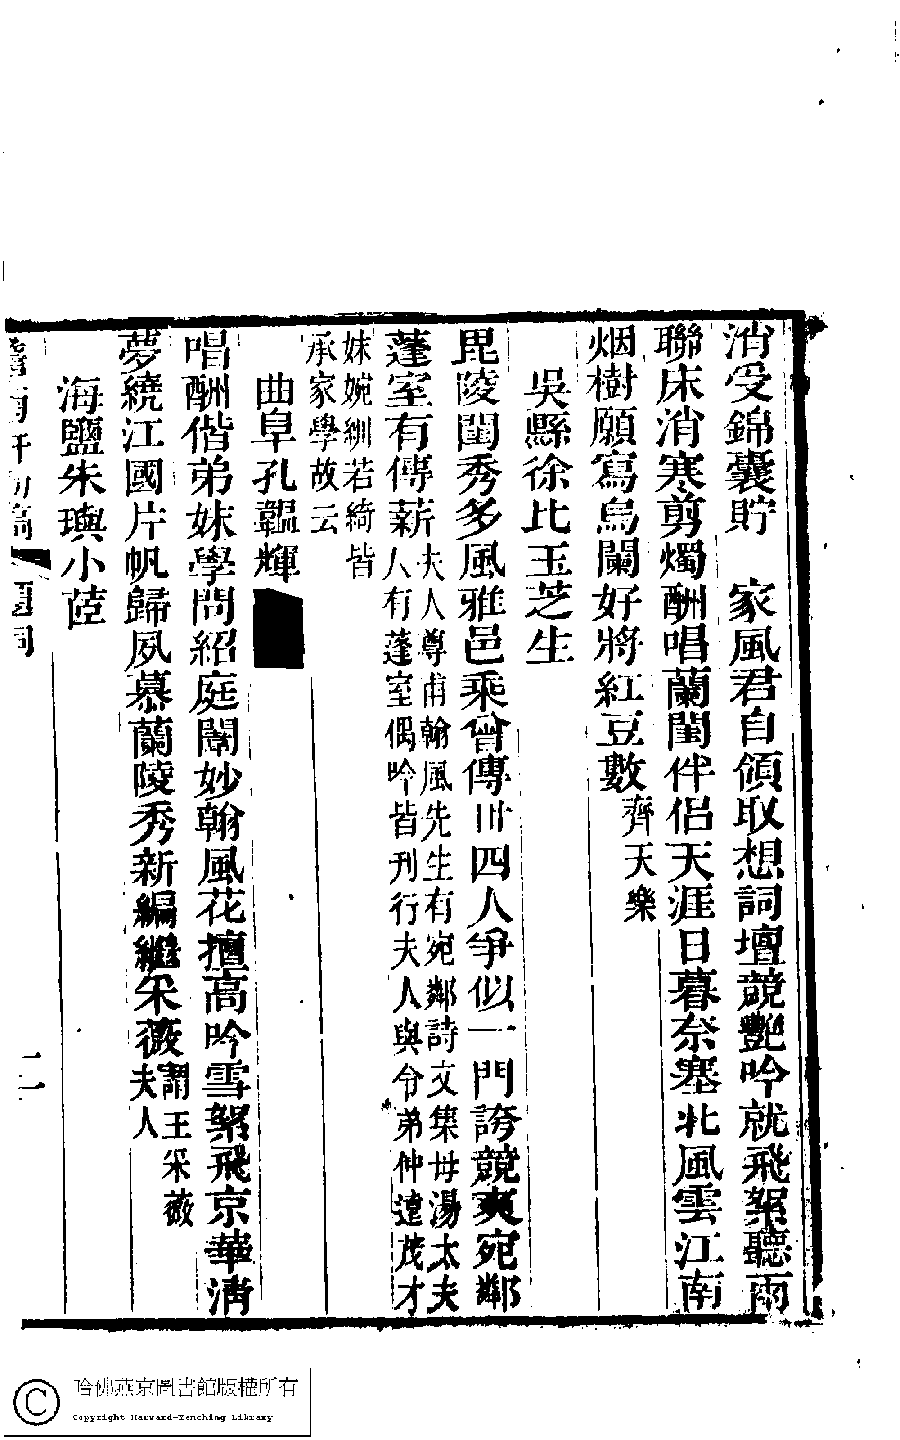 消受錦囊貯　家風君自領取想詞壇競艷吟就飛絮聽雨
聯床消寒剪燭酬唱蘭閨伴侶天涯日暮奈塞北風雲江南
烟樹願寫烏闌好將紅豆數齊天樂
吳縣徐比玉芝生
毘陵閨秀多風雅邑乘曾傳卅四人爭似一門誇競爽宛鄰
蓬室有傳薪夫人尊甫翰風先生有宛鄰詩文集母湯太夫
人有蓬室偶吟皆刊行夫人與令弟仲遠茂才
妹婉紃若綺皆
承家學故云
曲阜孔韞輝
唱酬偕弟妹學問紹庭闈妙翰風花擅高吟雪絮飛京華淸
夢繞江國片帆歸夙慕蘭陵秀新編繼采薇謂王采薇
夫人
海鹽朱璵小茞
初稿
題詞
二
哈佛燕京圖書館版權所有
Copyright Harvard-Yenching Library